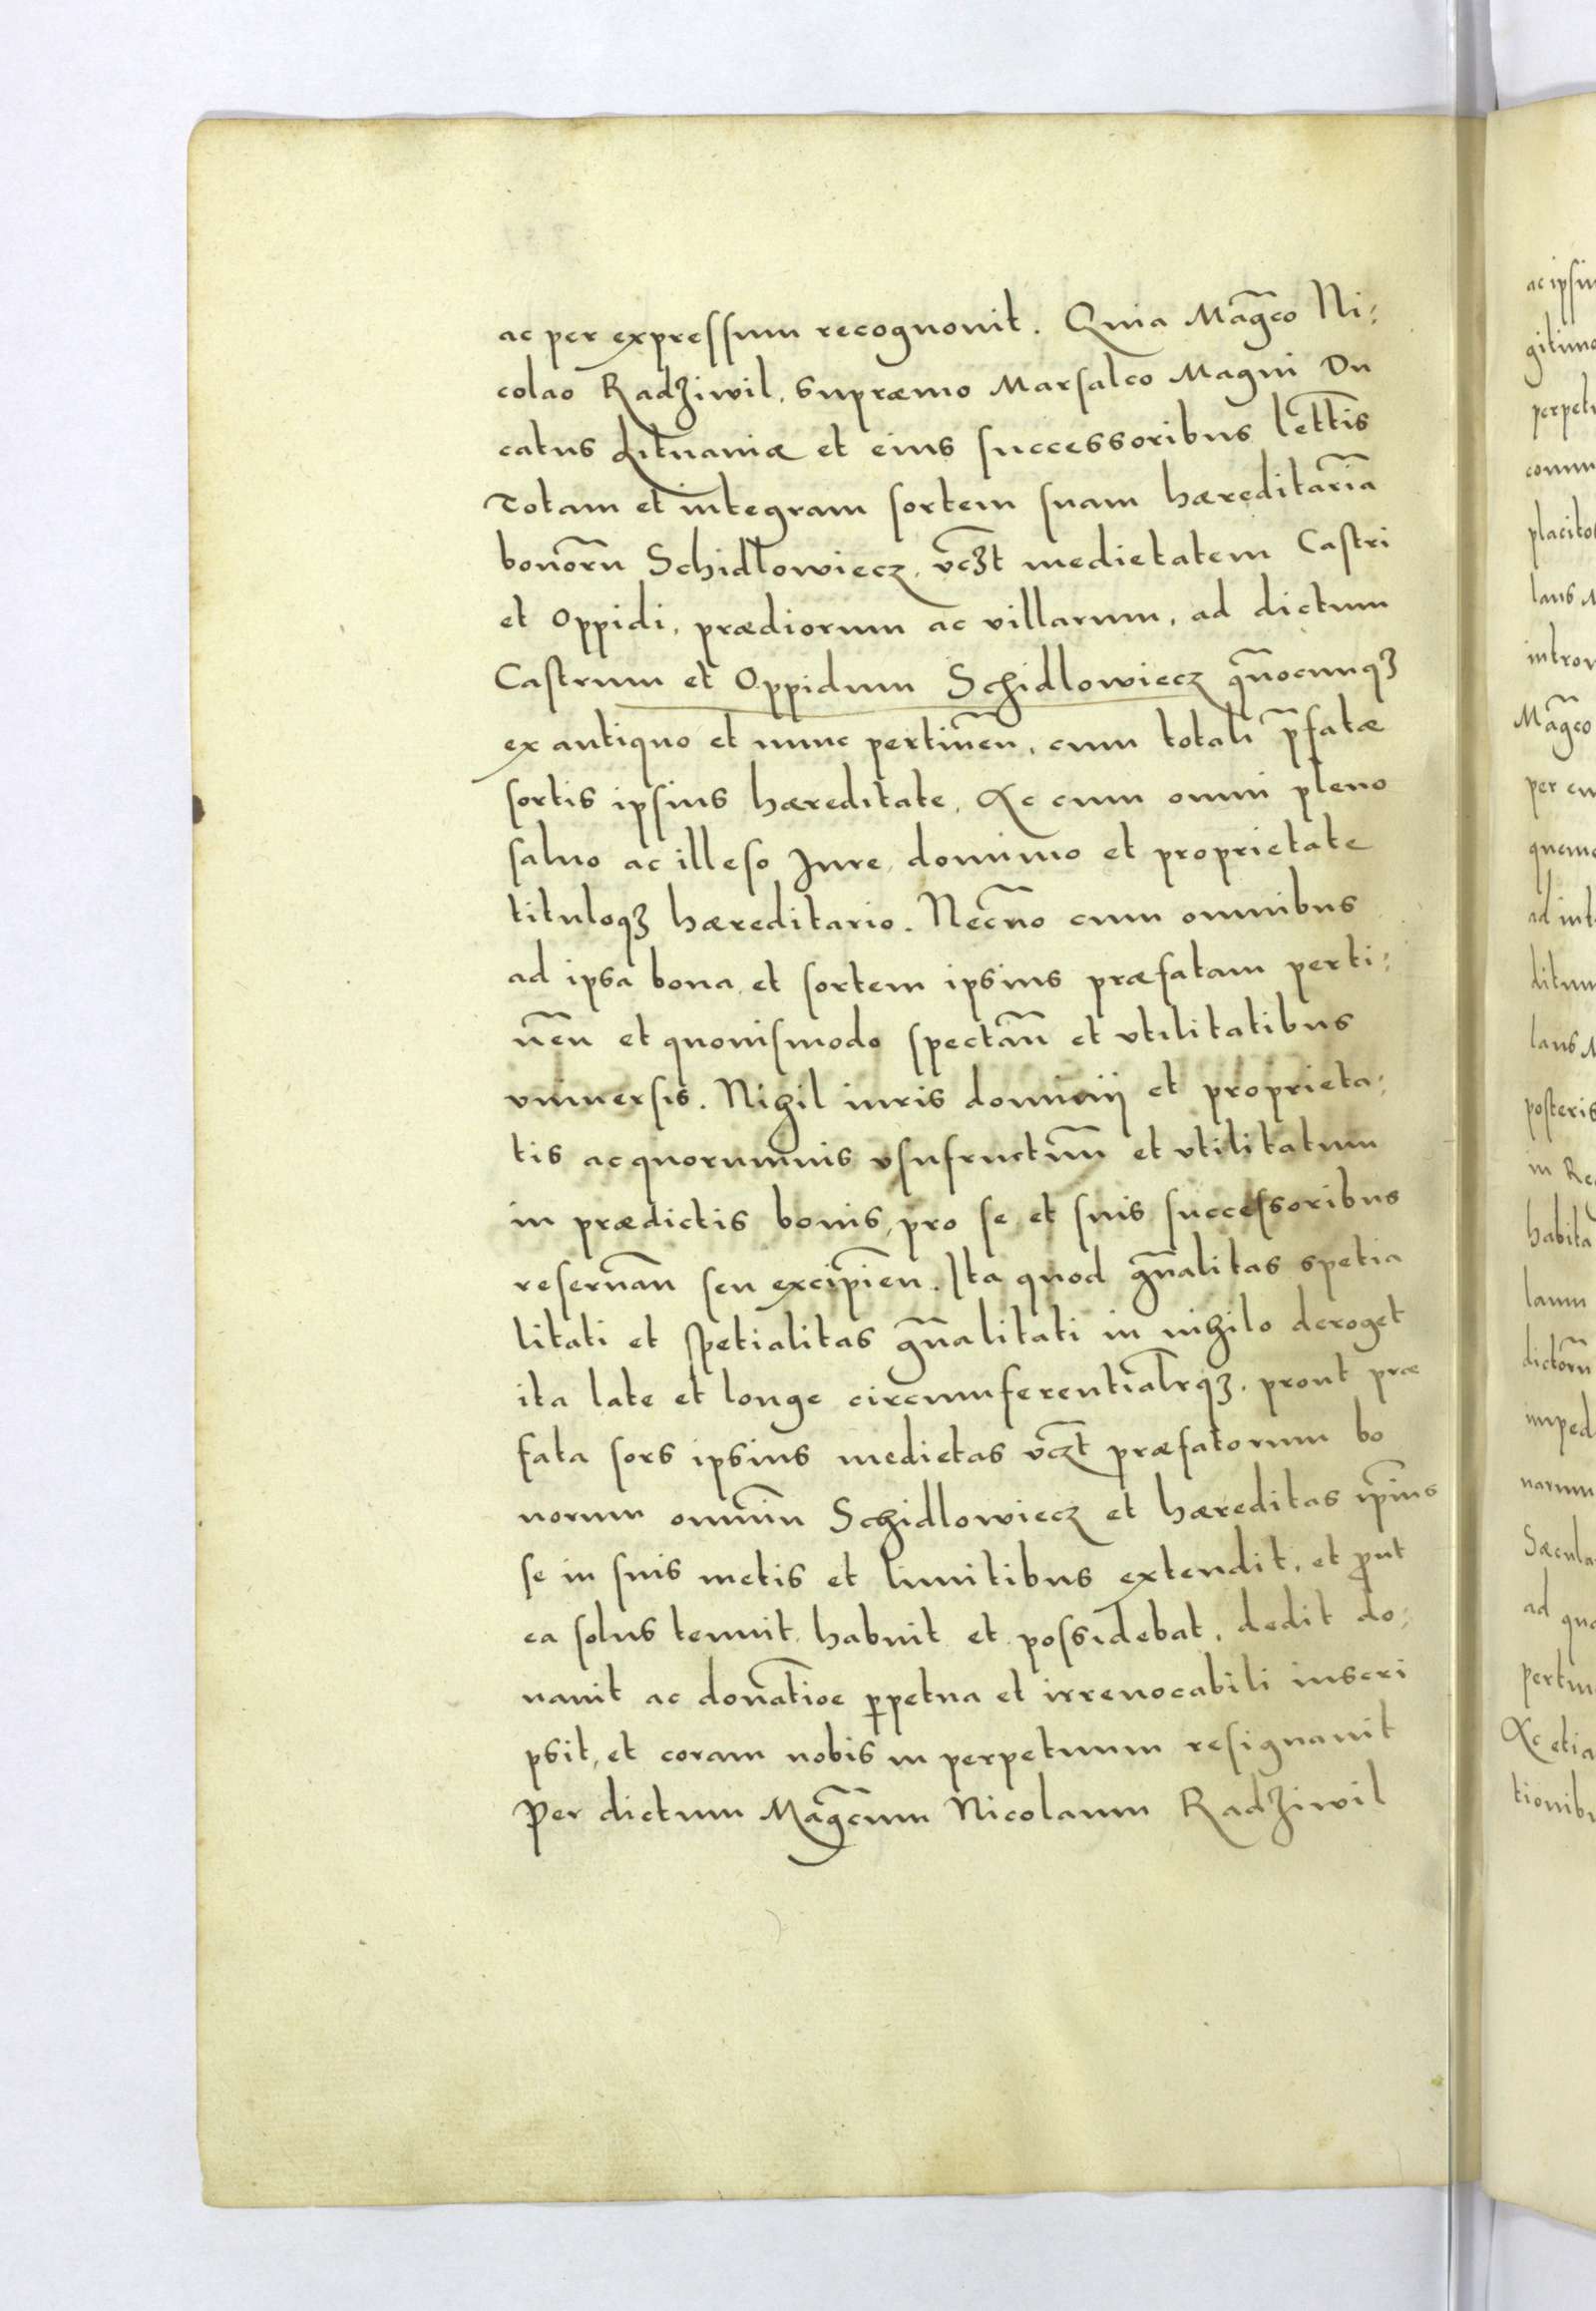 ac per expressum recognouit. Quia Mag̃co Ni:
colao Radziwil, Supræmo Marsalco Magni Du
catus Lituaniæ et eius successoribus l̃ettis
Totam et integram sortem suam hæreditariã
bonorũ Schidlowiecz, vcȝt medietatem Castri
et Oppidi, prædiorum ac villarum, ad dictum
Castrum et Oppidum Schidlowiecz quõcunqȝ
ex antiquo et nunc pertineñ, cum totali p̃fatæ
sortis ipsius hæreditate, Ac cum omni pleno
saluo ac illeso Jure, dominio et proprietate
tituloqȝ hæreditario. Necño cum omnibus
ad ipsa bona et sortem ipsius præfatam perti:
neñ et quouismodo spectañ et vtilitatibus
vniuersis. Nihil iuris dominij et proprieta:
tis ac quorumuis vsufructuũ et vtilitatum
in prædictis bonis, pro se et suis successoribus
reseruañ seu excipieñ. Ita quod gñalitas spetia
litati et spetialitas gñalitati in nihilo deroget
ita late et longe circumferentialr̃qȝ, prout præ
fata sors ipsius medietas vcȝt præfatorum bo
norum omniũ Schidlowiecz et hæreditas ip̃ius
se in suis metis et limitibus extendit, et ꝓut
ea solus tenuit habuit et possidebat, dedit do:
nauit ac donatĩoe ꝑpetua et irreuocabili inscri
psit, et coram nobis in perpetuum resignauit
Per dictum Mag̃cum Nicolaum Radziwil
ac ipsiu
gitimo
perpetu
comm
placito
laus M
introm
Mag̃co
per eu
quem
ad int
ditum
laus M
posteris
in Re
habita
laum
dictorũ
imped
narum
Sæcula
ad qua
pertin
Ac etia
tionibu